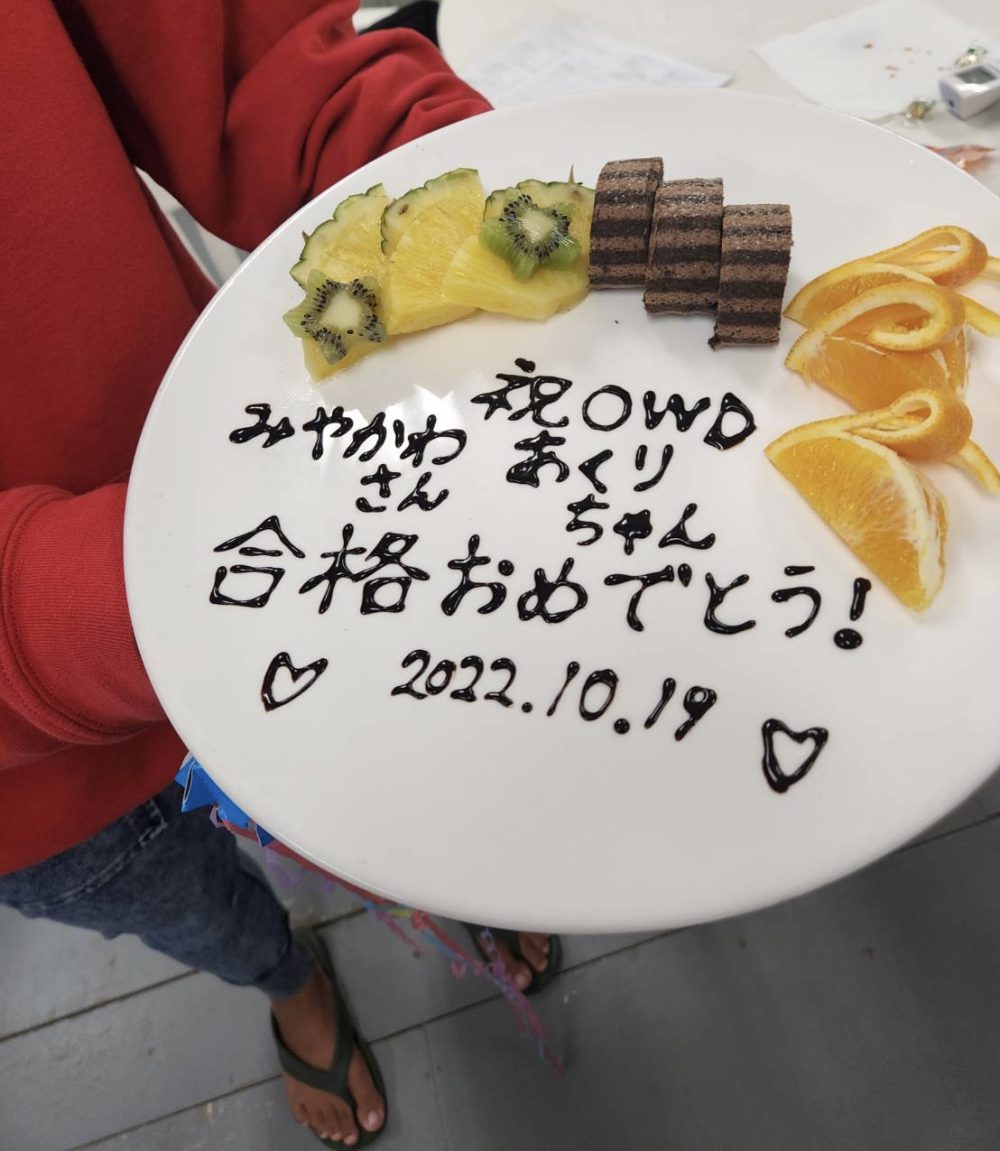 祝OWD
みやかわさん
あくりちゃん
合格おめでとう!
2022.10.19